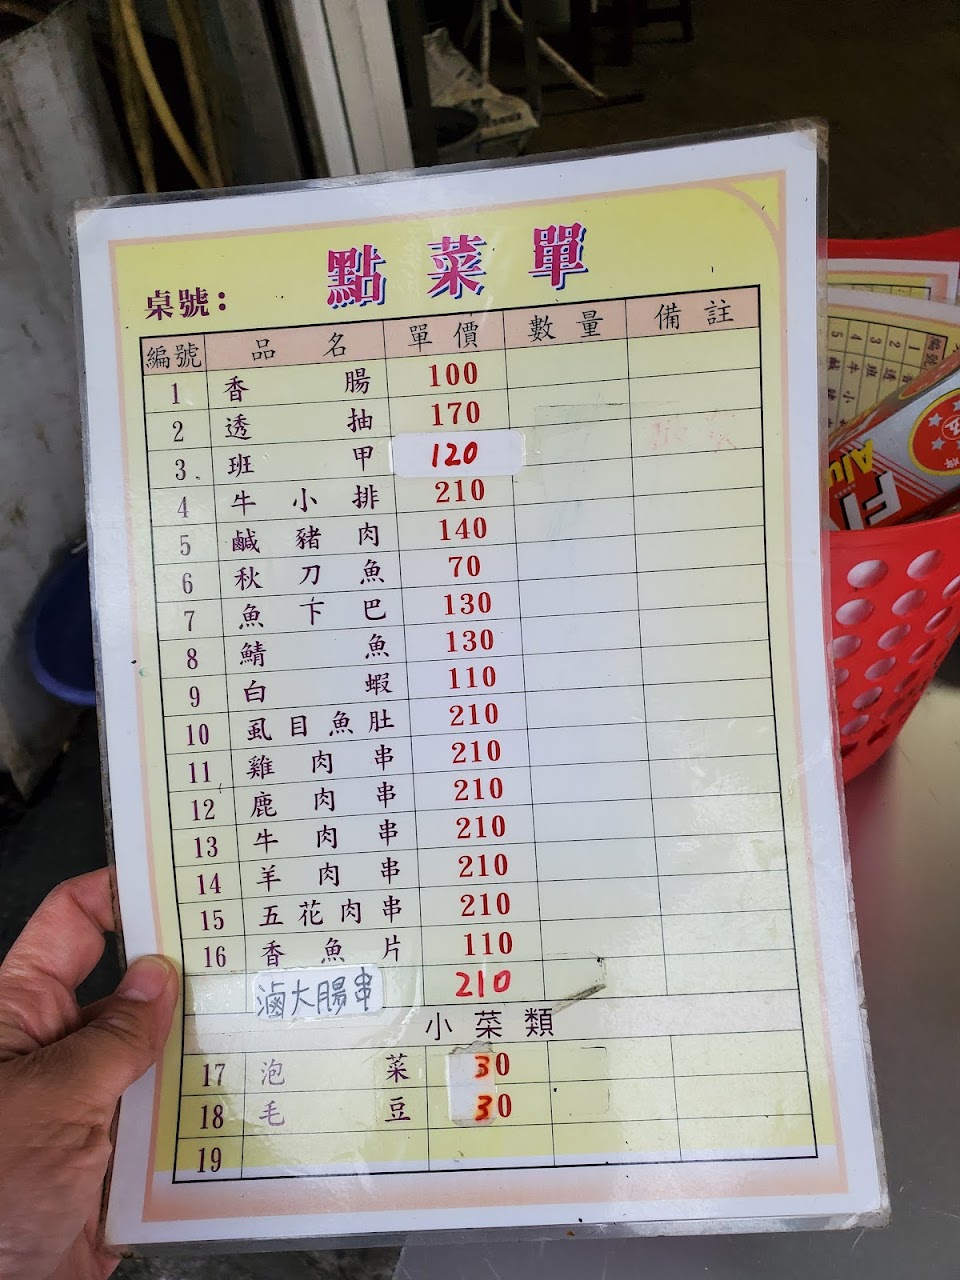 點菜單
桌號:
編號 品名 單價 數量 備註
1 香腸 100
2 透抽 170
3. 班甲 120
4 牛小排 210
5 鹹豬肉 140
6 秋刀魚 70
7 魚下巴 130
8 鯖魚 130
9 白蝦 110
10 虱目魚肚 210
11 雞肉串 210
12 鹿肉串 210
13 牛肉串 210
14 羊肉串 210
15 五花肉串 210
16 香魚片 110
滷大腸串 210
小菜類
17 泡菜 30
18 毛豆 30
19
編號
1
2
3
4
5